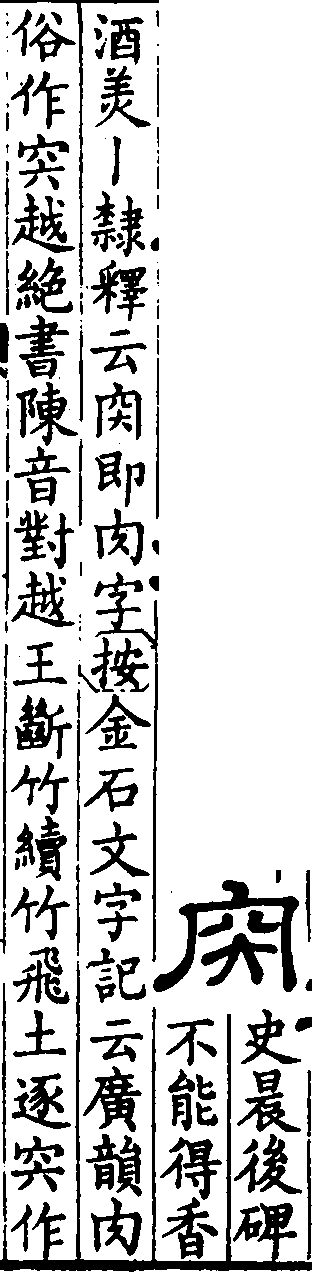 宍
史晨後碑
不能得香
酒美丨隸釋云宍即肉字按金石文字記云廣韻肉
俗作宍越絕書陳音對越王斷竹續竹飛土逐宍作